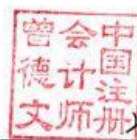 中国注册
会计师
曾德文